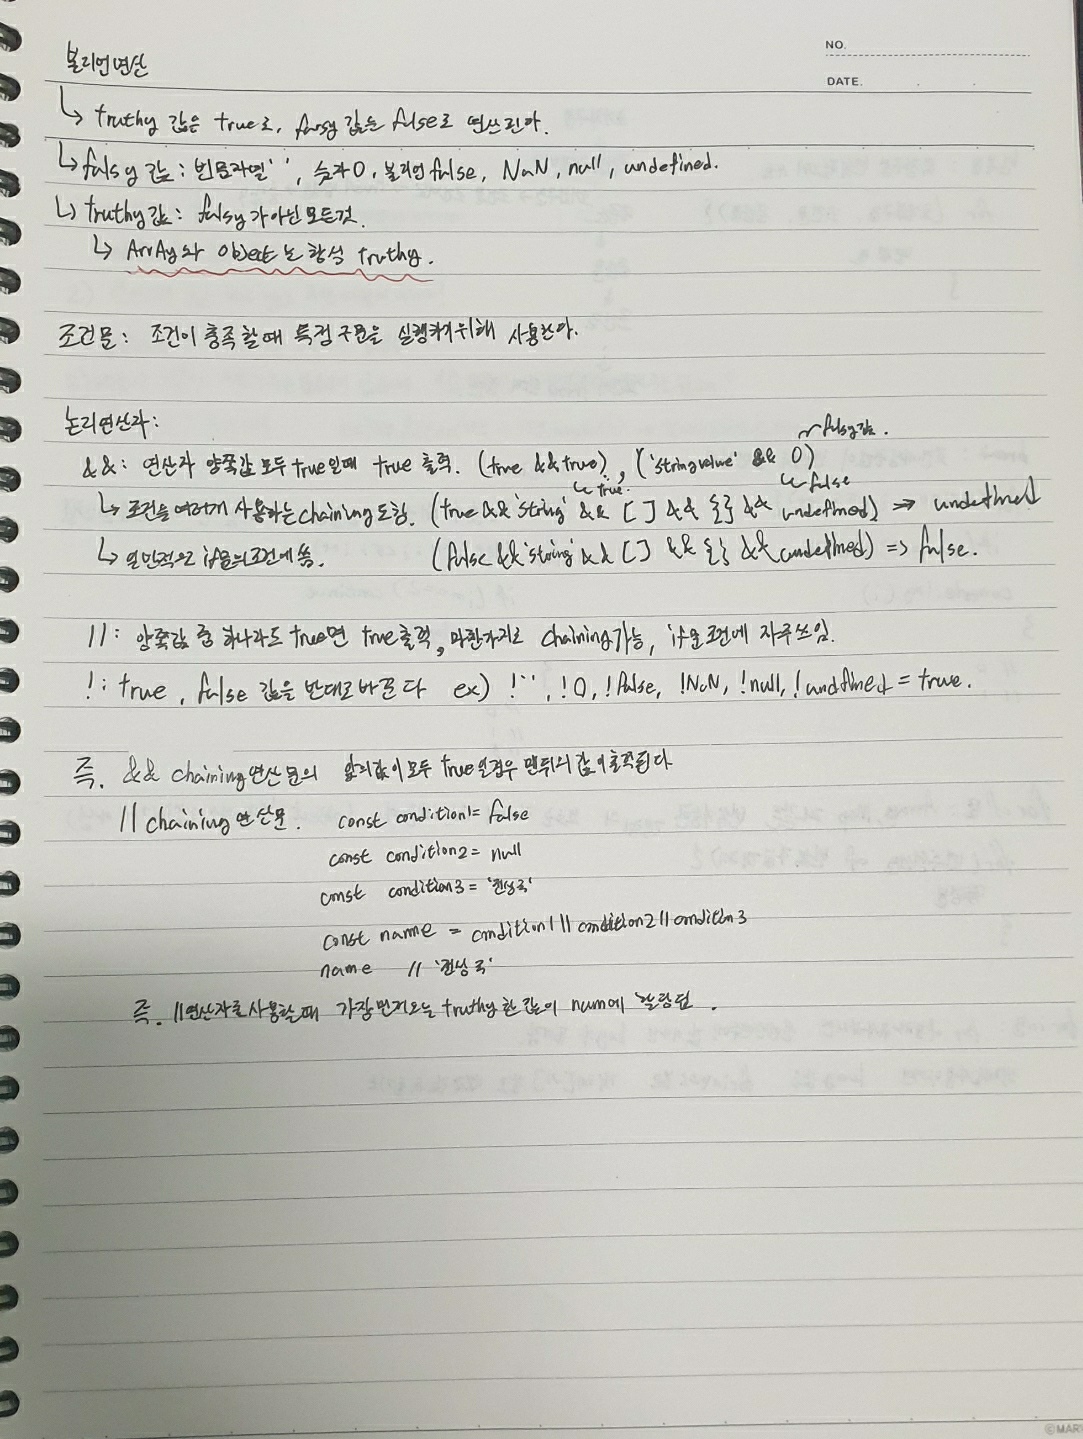 NO.
DATE.
볼리언연산
↳ truthy 값은 true로, falsy 값는 false로 연쓰린아.
↳ falsy 값 : 빈문자열'', 숫자0, 볼리언 false, NaN, null, undefined.
↳ truthy값 : falsy가아닌 모든것.
↳ ArrAy와 object는 항상 truthy.
조건문 : 조건이 충족할때 특정구문을 실행하기위해 사용한아.
논리연산자 :
falsy값.
&& : 연산자 양쪽값 모두 true일때 true 출력. (true && true), ('string value' && 0)
↳ true. ↳ false
↳ 조건을 여러개 사용하는 chaining도함. (true && 'string' && [ ] && { } && undefined) => undefined
↳ 일반적으로 if문의조건에씀. (false && 'string' && [ ] && { } && undefined) => false.
|| : 양쪽값 중 하나라도 true면 true출력, 마찬가지로 chaining가능, if문 조건에 자주쓰임.
! : true, false 값을 반대로바꾼다 ex) !'', !0, !false, !NaN, !null, !undefined = true.
즉. && chaining연산문의 앞의값이모두 true일경우 맨뒤의값이출력된다
|| chaining 연산문. const condition1= false
const condition2 = null
const condition3 = '전상국'
const name = condition1 || condition2 || condition3
name // '전상국'
즉. ||연산자를사용할때 가장먼저오는 truthy한값이 num에 할당됨.